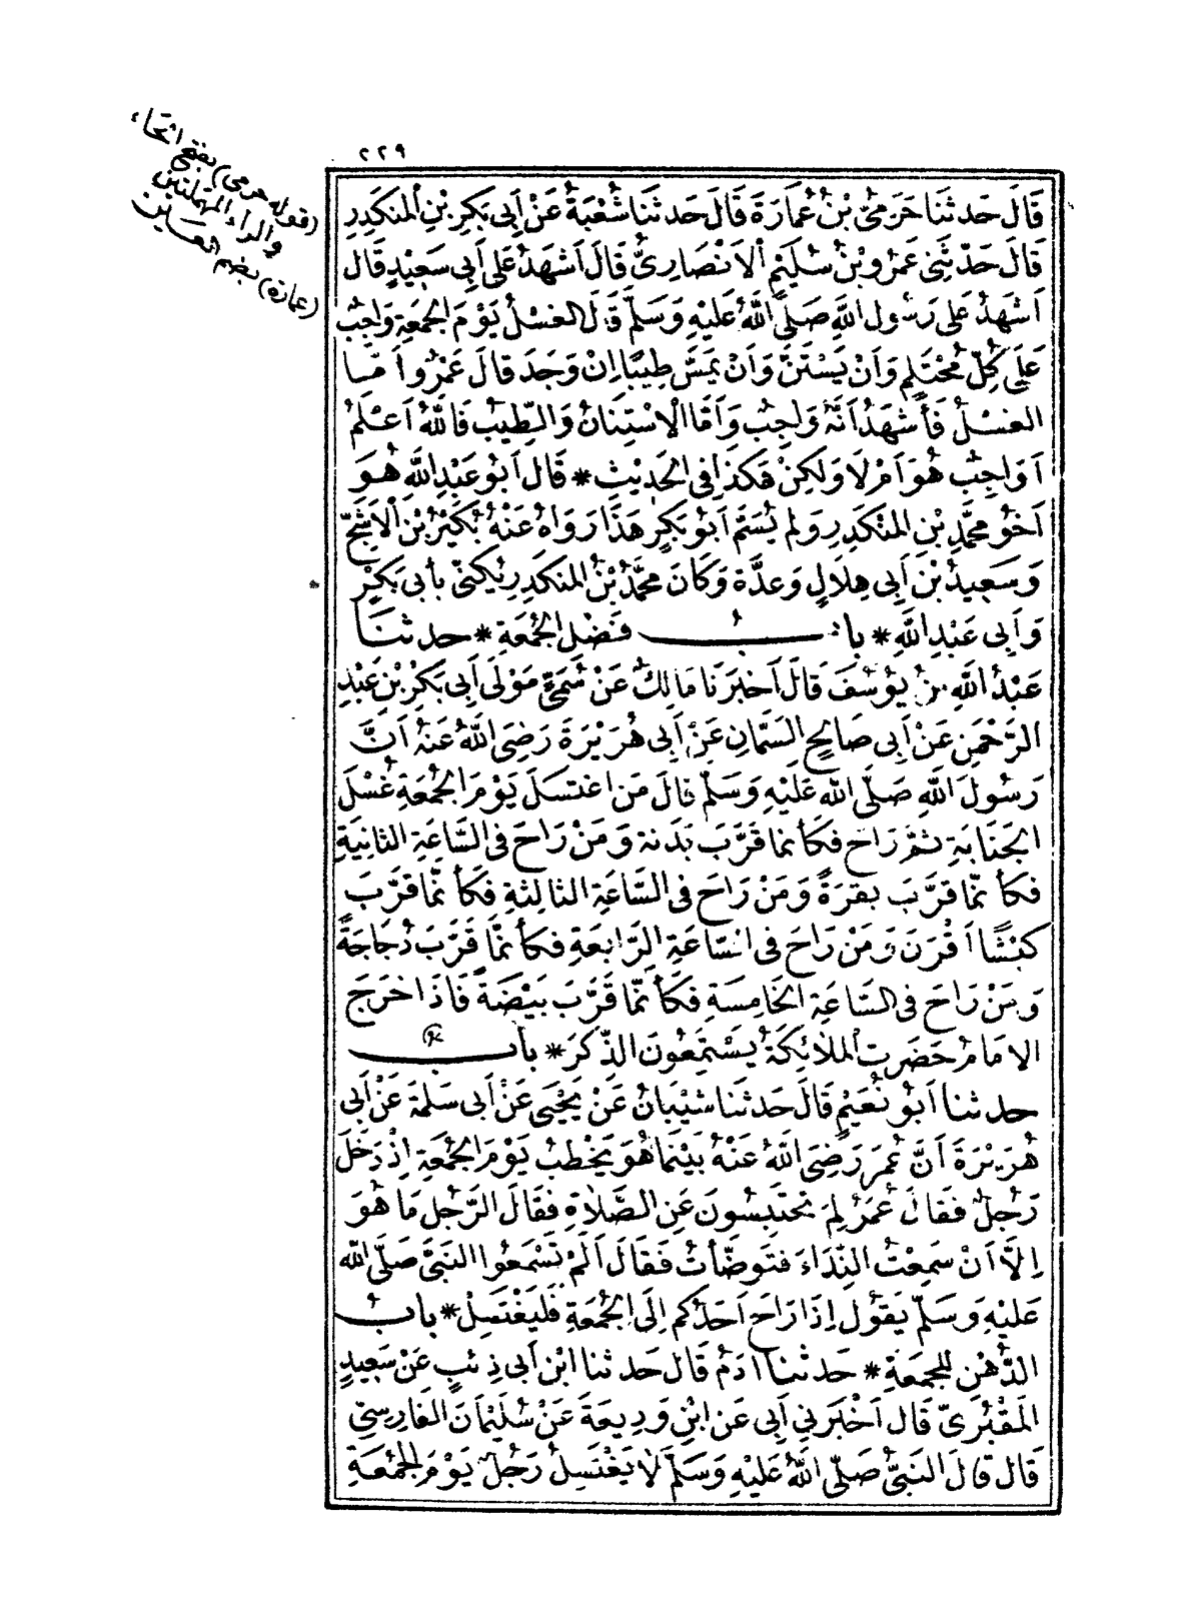 ٢٢٩
(قوله حرمى) بفتح الحاء
والراء المهملتين
(عمارة) بضم العين
قَالَ حَدثنَا حَرَمىُّ بْنُ عُمَارَةَ قَالَ حَدثنَا شُعْبَةُ عَنْ أَبى بَكِرِ بْنِ اْلمنكَدِرِ
قَالَ حَدّثَنِى عَمْرُو بْنُ سُلَيْمٍ اْلاَنْصَارِىُّ قَالَ اَشهَدُ عَلى أَبِى سَعِيْدٍ قَالَ
اَشهَدُ عَلى رَسُولِ اللَّهِ صَلَّى اللَّهُ عَلَيْهِ وَسَلَّمَ قَالَ الغسْلُ يَوْمَ الجمعَةِ وَاجِبٌ
عَلَى كُلِّ مُحْتَلِمٍ وَاَنْ يَسْتَنَّ وَاَنْ يَمَسَّ طِيبًا اِنْ وَجَدَ قَالَ عَمْرٌو اَ مّا
الغسْلُ فَأَشهَدُ اَنَّهُ وَاجِبٌ وَاَمَّا الْاسْتِنَانُ وَالطِّيبُ فَاللَّهُ اَعْلَمُ
اَوَاجِبٌ هُوَ اَمْ لَا وَلَكِنْ هَكَذَا فِى الحَدِيْثِ * قَالَ اَبُو عَبْدِ اللَّهِ هُوَ
اَخُو محَمَّدِ بْنِ المنْكَدِرِ وَلم يُسَمَّ اَبُو بَكِرٍ هَذَا رَوَاهُ عَنْهُ بُكَيْرُ بْنُ الْاَشَجِّ
وَسَعِيدُ بْنُ اَبِى هِلَالٍ وَعدَّة وَكَانَ محَمَّدُ بْنُ المنكَدِرِ يُكَنّى بأبى بَكِرٍ
وَأَبِى عَبْدِ اللَّهِ * بابُ فَضْلِ الجُمُعَةِ * حدثنَا
عَبْدُ اللَّهِ بنُ يوُسُفَ قَالَ اَخبَرَنَا مَالِكٌ عَنْ سُمَىٍّ مَوْلَى أَبِى بَكْرِ بْنِ عَبْدِ
الرَّحْمَنِ عَنْ أَبِى صَالِحٍ السَّمَّانِ عَنْ أَبِى هُرَيْرَةَ رَضِىَ اللَّهُ عَنْهُ اَنَّ
رَسُولَ اللَّهِ صَلَّى اللَّه عَلَيْهِ وَسَلَّمَ قَالَ مَن اغتسَلَ يَوْمَ الجُمُعَةِ غُسْلَ
الجَنَابَةِ ثمَّ رَاحَ فكَأنما قرَّبَ بَدَنة وَمَنْ رَاحَ فى السَّاعَةِ الثانِيَةِ
فكأ نّمَا قرَّبَ بقرَةً وَمَنْ رَاحَ فى السَّاعَةِ الثالِثةِ فكَأ نّما قرَّبَ
كبْشًا اَقْرَنَ وَمَنْ رَاحَ فى السّاعَةِ الرَّابعَةِ فكأنمَّا قَرَّبَ دُجَاجَةً
وَمَنْ رَاحَ فى السَّاعَةِ الخامِسَةِ فَكَأنّما قَرَّبَ بَيْضَةً فَاذَا خرَجَ
الامَامُ حَضَرَتِ اْلملَائِكَةُ يَسْتَمِعُونَ الذّكرَ * بابٌ
حدثنا اَبوُ نُعَيْمٍ قَالَ حَدثنا شيْبَانُ عَنْ يَحْيَى عَنْ أَبى سَلمَةَ عَنْ أَبى
هُرَيْرَةَ اَنَّ عُمَرَ رَضِىَ اللَّهُ عَنْهُ بَيْنَمَا هُوَ يَخْطبُ يَوْمَ الجُمُعَةِ اِذْ دَخَلَ
رَجُلٌ فقَالَ عُمَرُ لِمَ تَحْتَبِسُونَ عَنِ الصَّلَاةِ فقَالَ الرَّجُل مَا هُوَ
اِلَّا اَنْ سَمِعْتُ النّدَاءَ فتَوَضّأتُ فَقَالَ اَلَمْ تَسْمَعُوا النبَىَّ صَلَّى اللَّه
عَلَيْهِ وَسَلَّمَ يَقوُل إِذَا رَاحَ اَحَدُكم اِلَى الجُمُعَةِ فَليَغْتَسِلْ * بابُ
الدُّهْنِ للجمعَةِ * حَدثنا آدَمُ قَالَ حَدثنا ابْن أَبى ذِئبٍ عَنْ سَعِيدٍ
المَقْبُرِىِّ قَالَ اَخْبَرَنى أَبِى عَن ابْنِ وَدِيعَةَ عَنْ سُلَيْمَانَ الفَارِسِيّ
قَالَ قَالَ النَبىُّ صَلَّى اللَّهُ عَلَيْهِ وَسَلَّمَ لَا يَغْتَسِلُ رَجُلٌ يَوْمَ الجُمُعَةِ